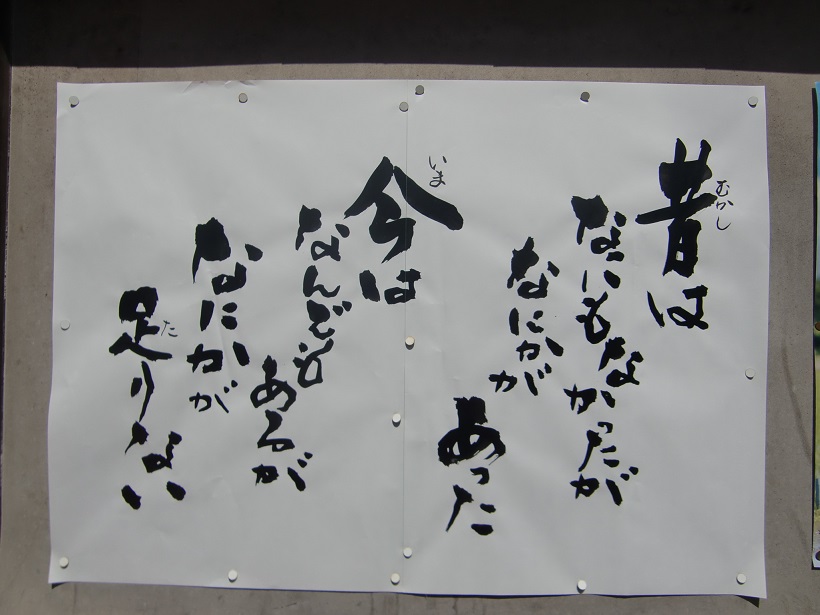 昔は
むかし
なにもなかったが
なにかが
あった
今は
いま
なんでも
あるが
なにかが
足りない
た